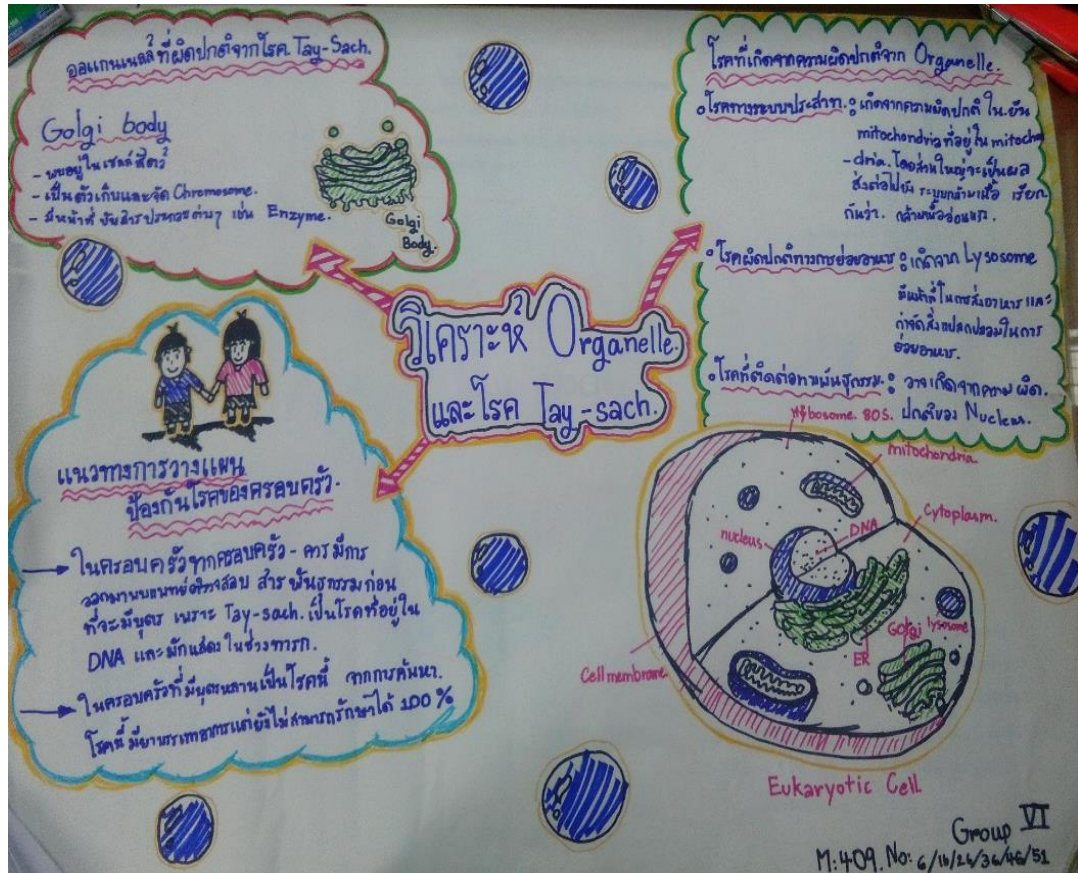 ออแกนเนลล์ที่ผิดปกติจากโรค Tay-Sach.
Golgi body
- พบอยู่ในเซลล์สัตว์
- เป็นตัวเก็บและจัด Chromosome.
- มีหน้าที่ ขับสารประเภทต่างๆ เช่น Enzyme.
Golgi
Body.
โรคที่เกิดจากความผิดปกติจาก Organelle.
โรคทางระบบประสาท : เกิดจากความผิดปกติ ใน ยีน
mitochondria ที่อยู่ใน mitocho
-dria. โดยส่วนใหญ่จะเป็นผล
ส่งต่อไปยัง ระบบกล้ามเนื้อ เรียก
กันว่า. กล้ามเนื้ออ่อนแรง.
โรคผิดปกติทางการย่อยอาหาร : เกิดจาก Lysosome
มีหน้าที่ในการส่งอาหาร และ
กำจัดสิ่งแปลกปลอมในการ
ย่อยอาหาร.
โรคที่ติดต่อทางพันธุกรรม : อาจเกิดจากความผิด.
ปกติของ Nucleus.
วิเคราะห์ Organelle.
และโรค Tay-sach.
แนวทางการวางแผน
ป้องกันโรคของครอบครัว.
ในครอบครัวทุกครอบครัว - ควรมีการ
ออกมาพบแพทย์ตรวจสอบ สารพันธุกรรมก่อน
ที่จะมีบุตร เพราะ Tay-sach. เป็นโรคที่อยู่ใน
DNA และมักแสดงในช่วงทารก.
ในครอบครัวที่มีบุตรหลานเป็นโรคนี้ จากการค้นหา.
โรคนี้มียาบรรเทาอาการแต่ยังไม่สามารถรักษาได้ 100%
Rybosome. 80S.
mitochondria.
cytoplasm.
nucleus
DNA
Golgi
lysosome
ER
Cell membrane
Eukaryotic Cell.
Group VI
M:409. No: 6/16/26/36/46/51